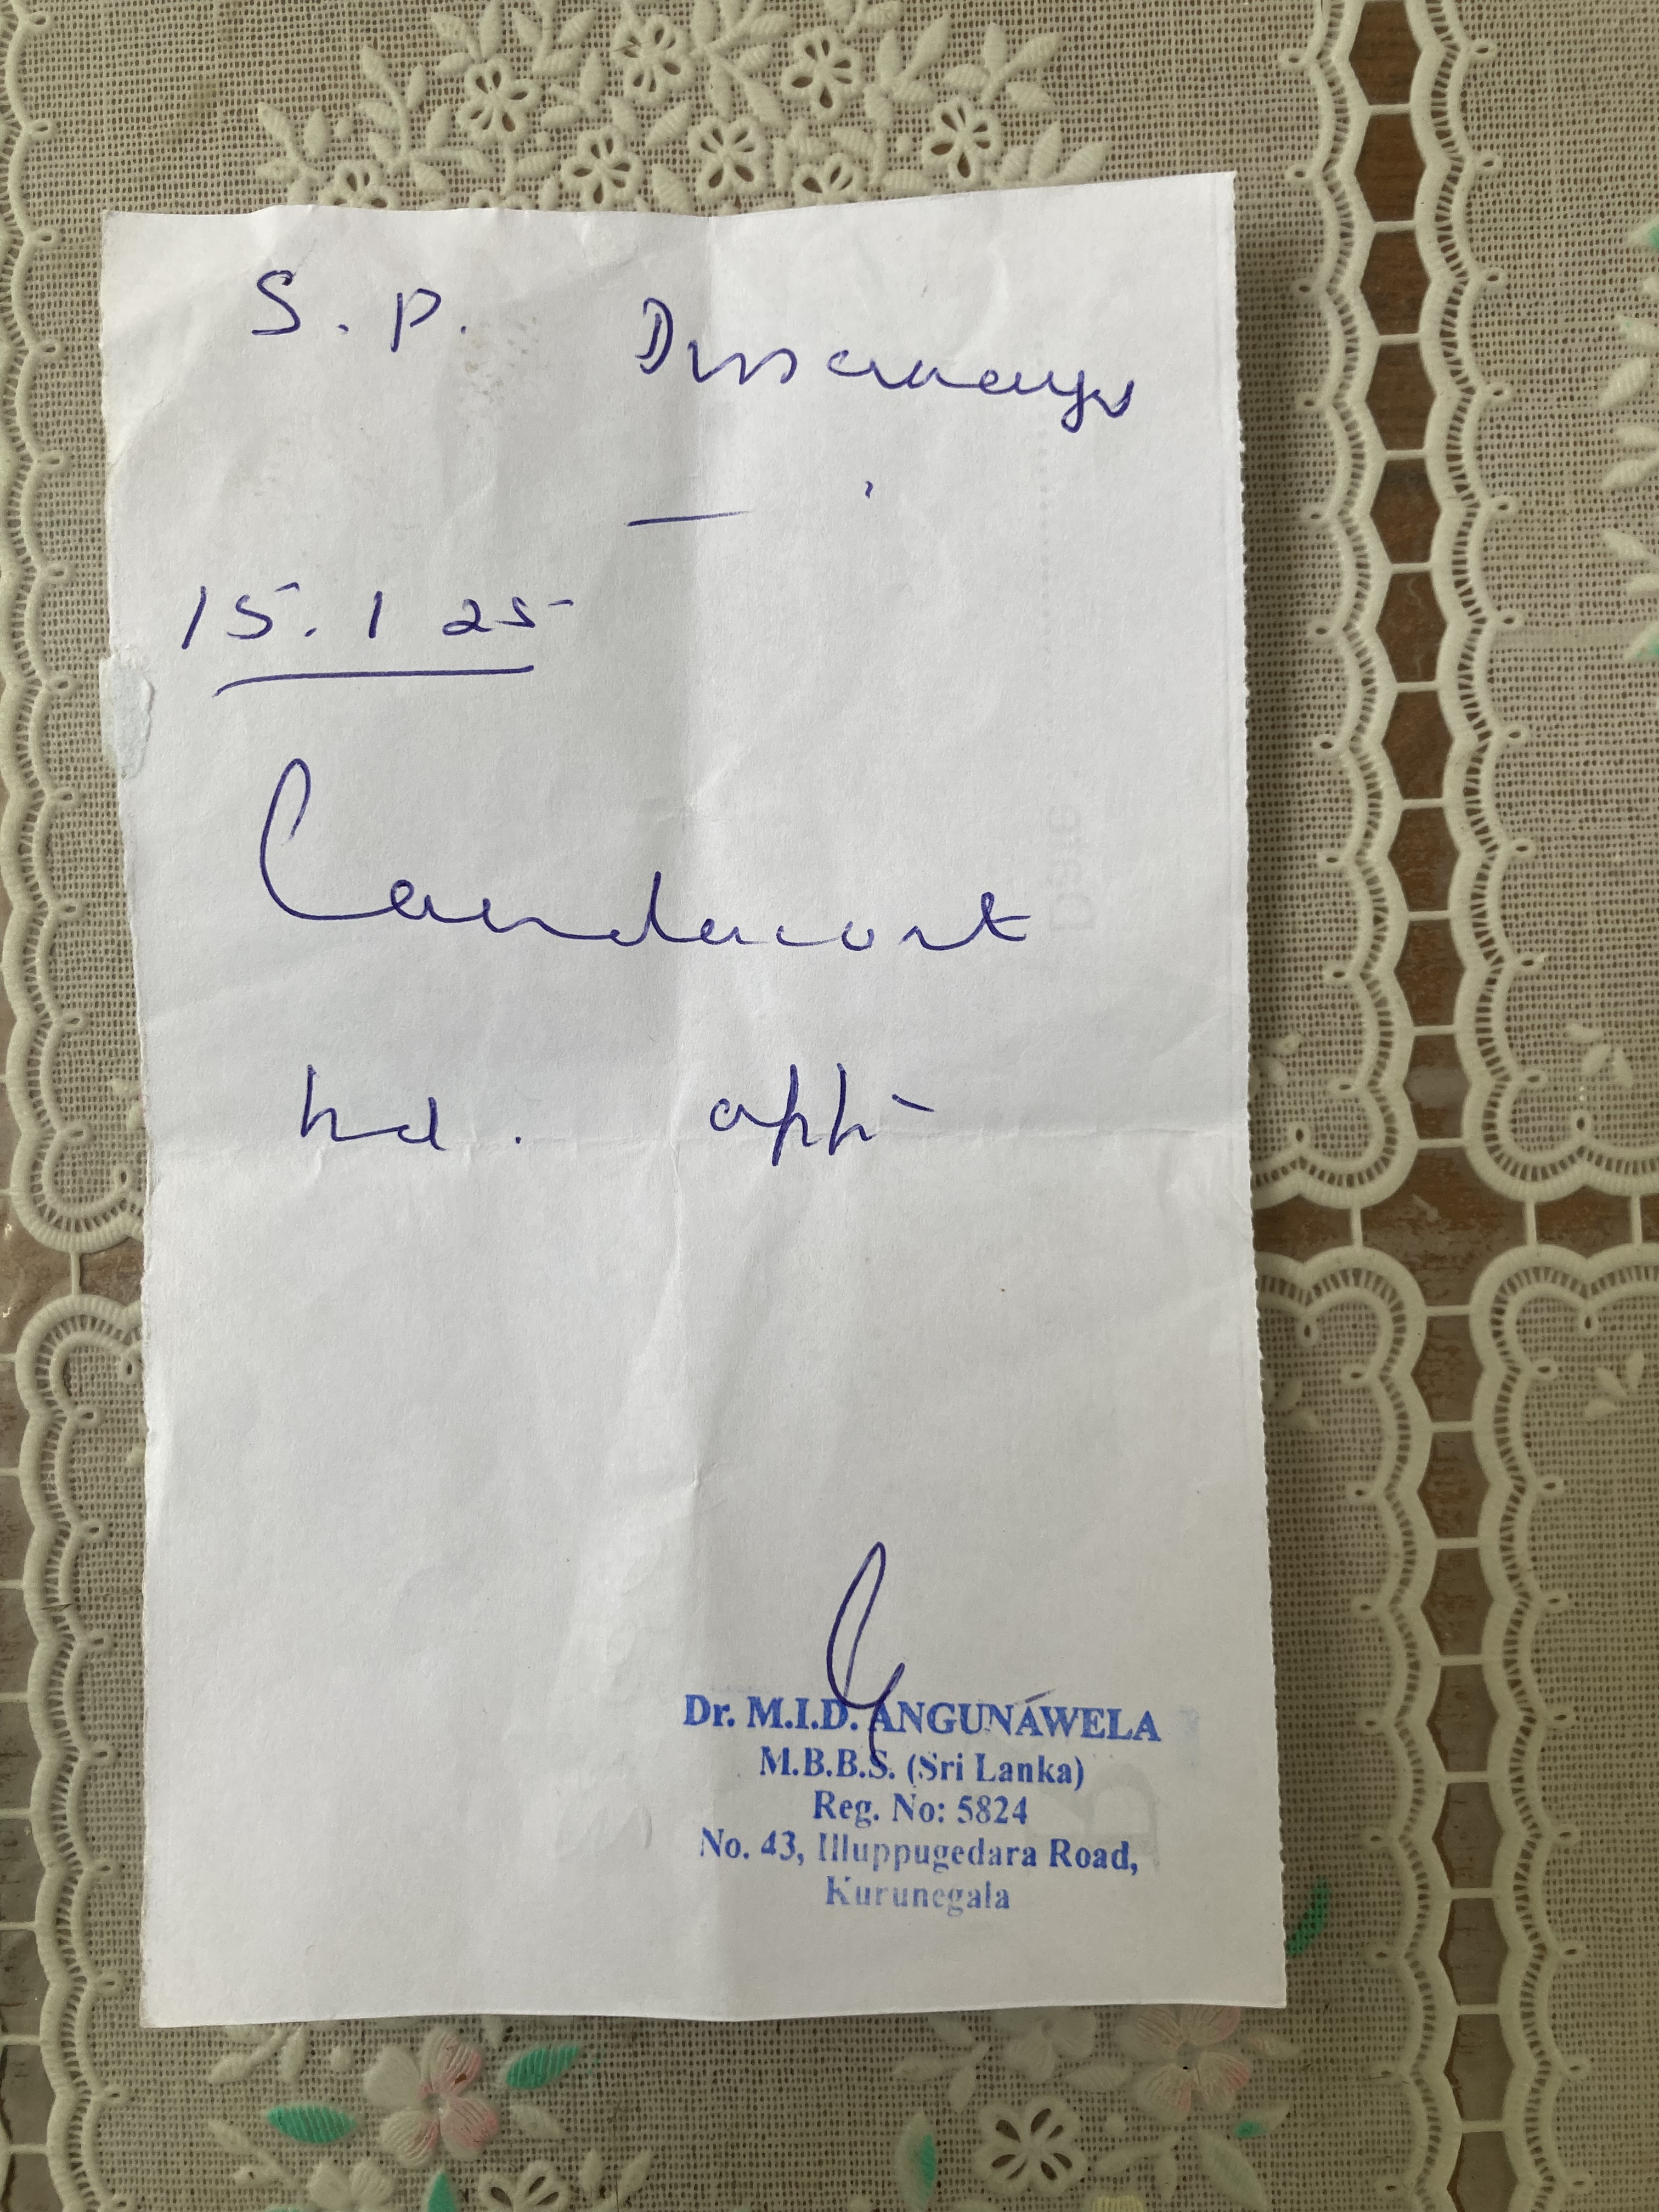 S. P. Dissanaya
15. 1 25
Candacort
bd. appli
Dr. M.I.D. ANGUNAWELA
M.B.B.S. (Sri Lanka)
Reg. No: 5824
No. 43, Illuppugedara Road,
Kurunegala